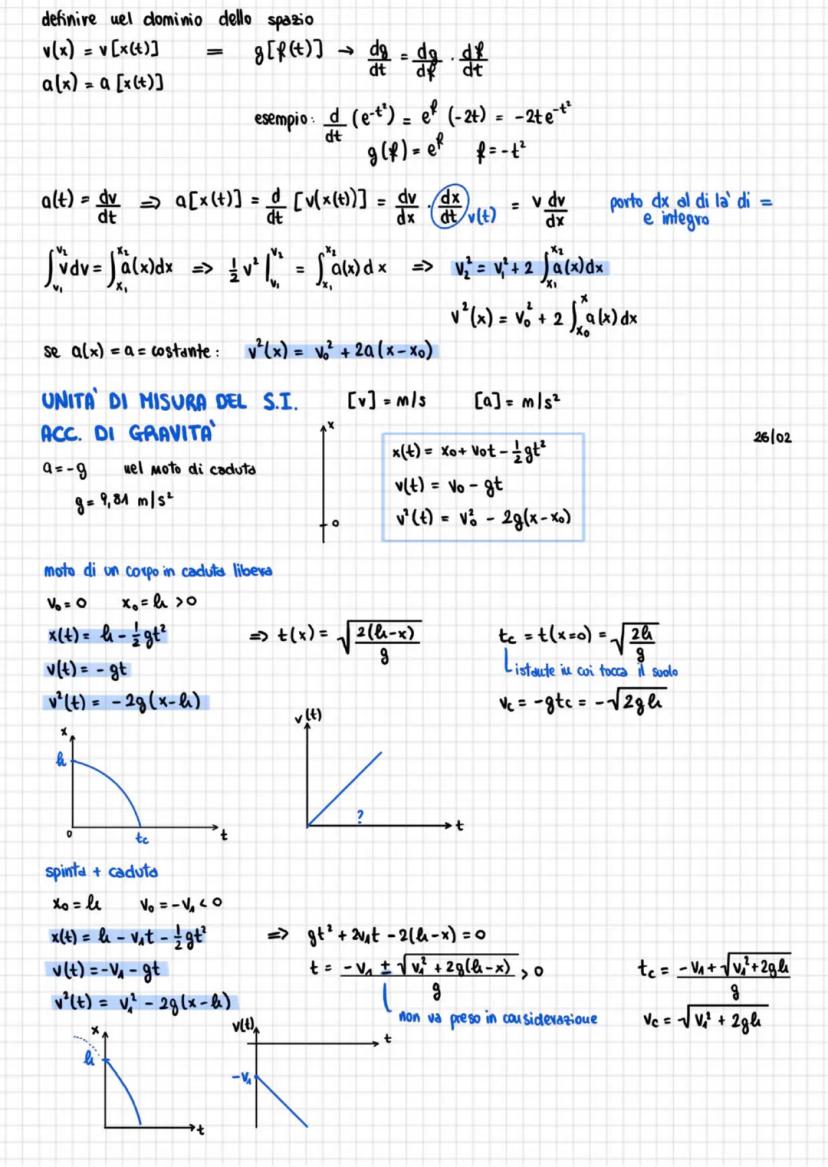 definire nel dominio dello spazio
v(x) = v[x(t)] = g[f(t)] → dg/dt = dg/df · df/dt
a(x) = a[x(t)]
esempio: d/dt (e^-t²) = e^f (-2t) = -2te^-t²
g(f) = e^f f = -t²
a(t) = dv/dt => a[x(t)] = d/dt [v(x(t))] = dv/dx · dx/dt v(t) = v dv/dx porto dx al di la' di =
e integro
∫_v₁^v₂ vdv = ∫_x₁^x₂ a(x)dx => ½v² |_v₁^v₂ = ∫_x₁^x₂ a(x)dx => v₂² = v₁² + 2 ∫_x₁^x₂ a(x)dx
v²(x) = v₀² + 2 ∫_x₀^x a(x)dx
se a(x) = a = costante: v²(x) = v₀² + 2a(x-x₀)
UNITA' DI MISURA DEL S.I. [v] = m/s [a] = m/s²
ACC. DI GRAVITA'
26/02
a = -g nel moto di caduta
g = 9,81 m/s²
x
0
x(t) = x₀ + v₀t - ½gt²
v(t) = v₀ - gt
v²(t) = v₀² - 2g(x-x₀)
moto di un corpo in caduta libera
v₀ = 0 x₀ = h > 0
x(t) = h - ½gt² => t(x) = √(2(h-x)/g) tc = t(x=0) = √(2h/g)
istante in cui tocca il suolo
v(t) = -gt
v²(t) = -2g(x-h) vc = -gtc = -√2gh
x
h
0
tc
t
v(t)
?
t
spinta + caduta
x₀ = h v₀ = -v₁ < 0
x(t) = h - v₁t - ½gt² => gt² + 2v₁t - 2(h-x) = 0
v(t) = -v₁ - gt t = (-v₁ ± √(v₁² + 2g(h-x)))/g > 0 tc = (-v₁ + √(v₁² + 2gh))/g
non va preso in considerazione
v²(t) = v₁² - 2g(x-h) vc = √(v₁² + 2gh)
x
h
t
v(t)
t
-v₁